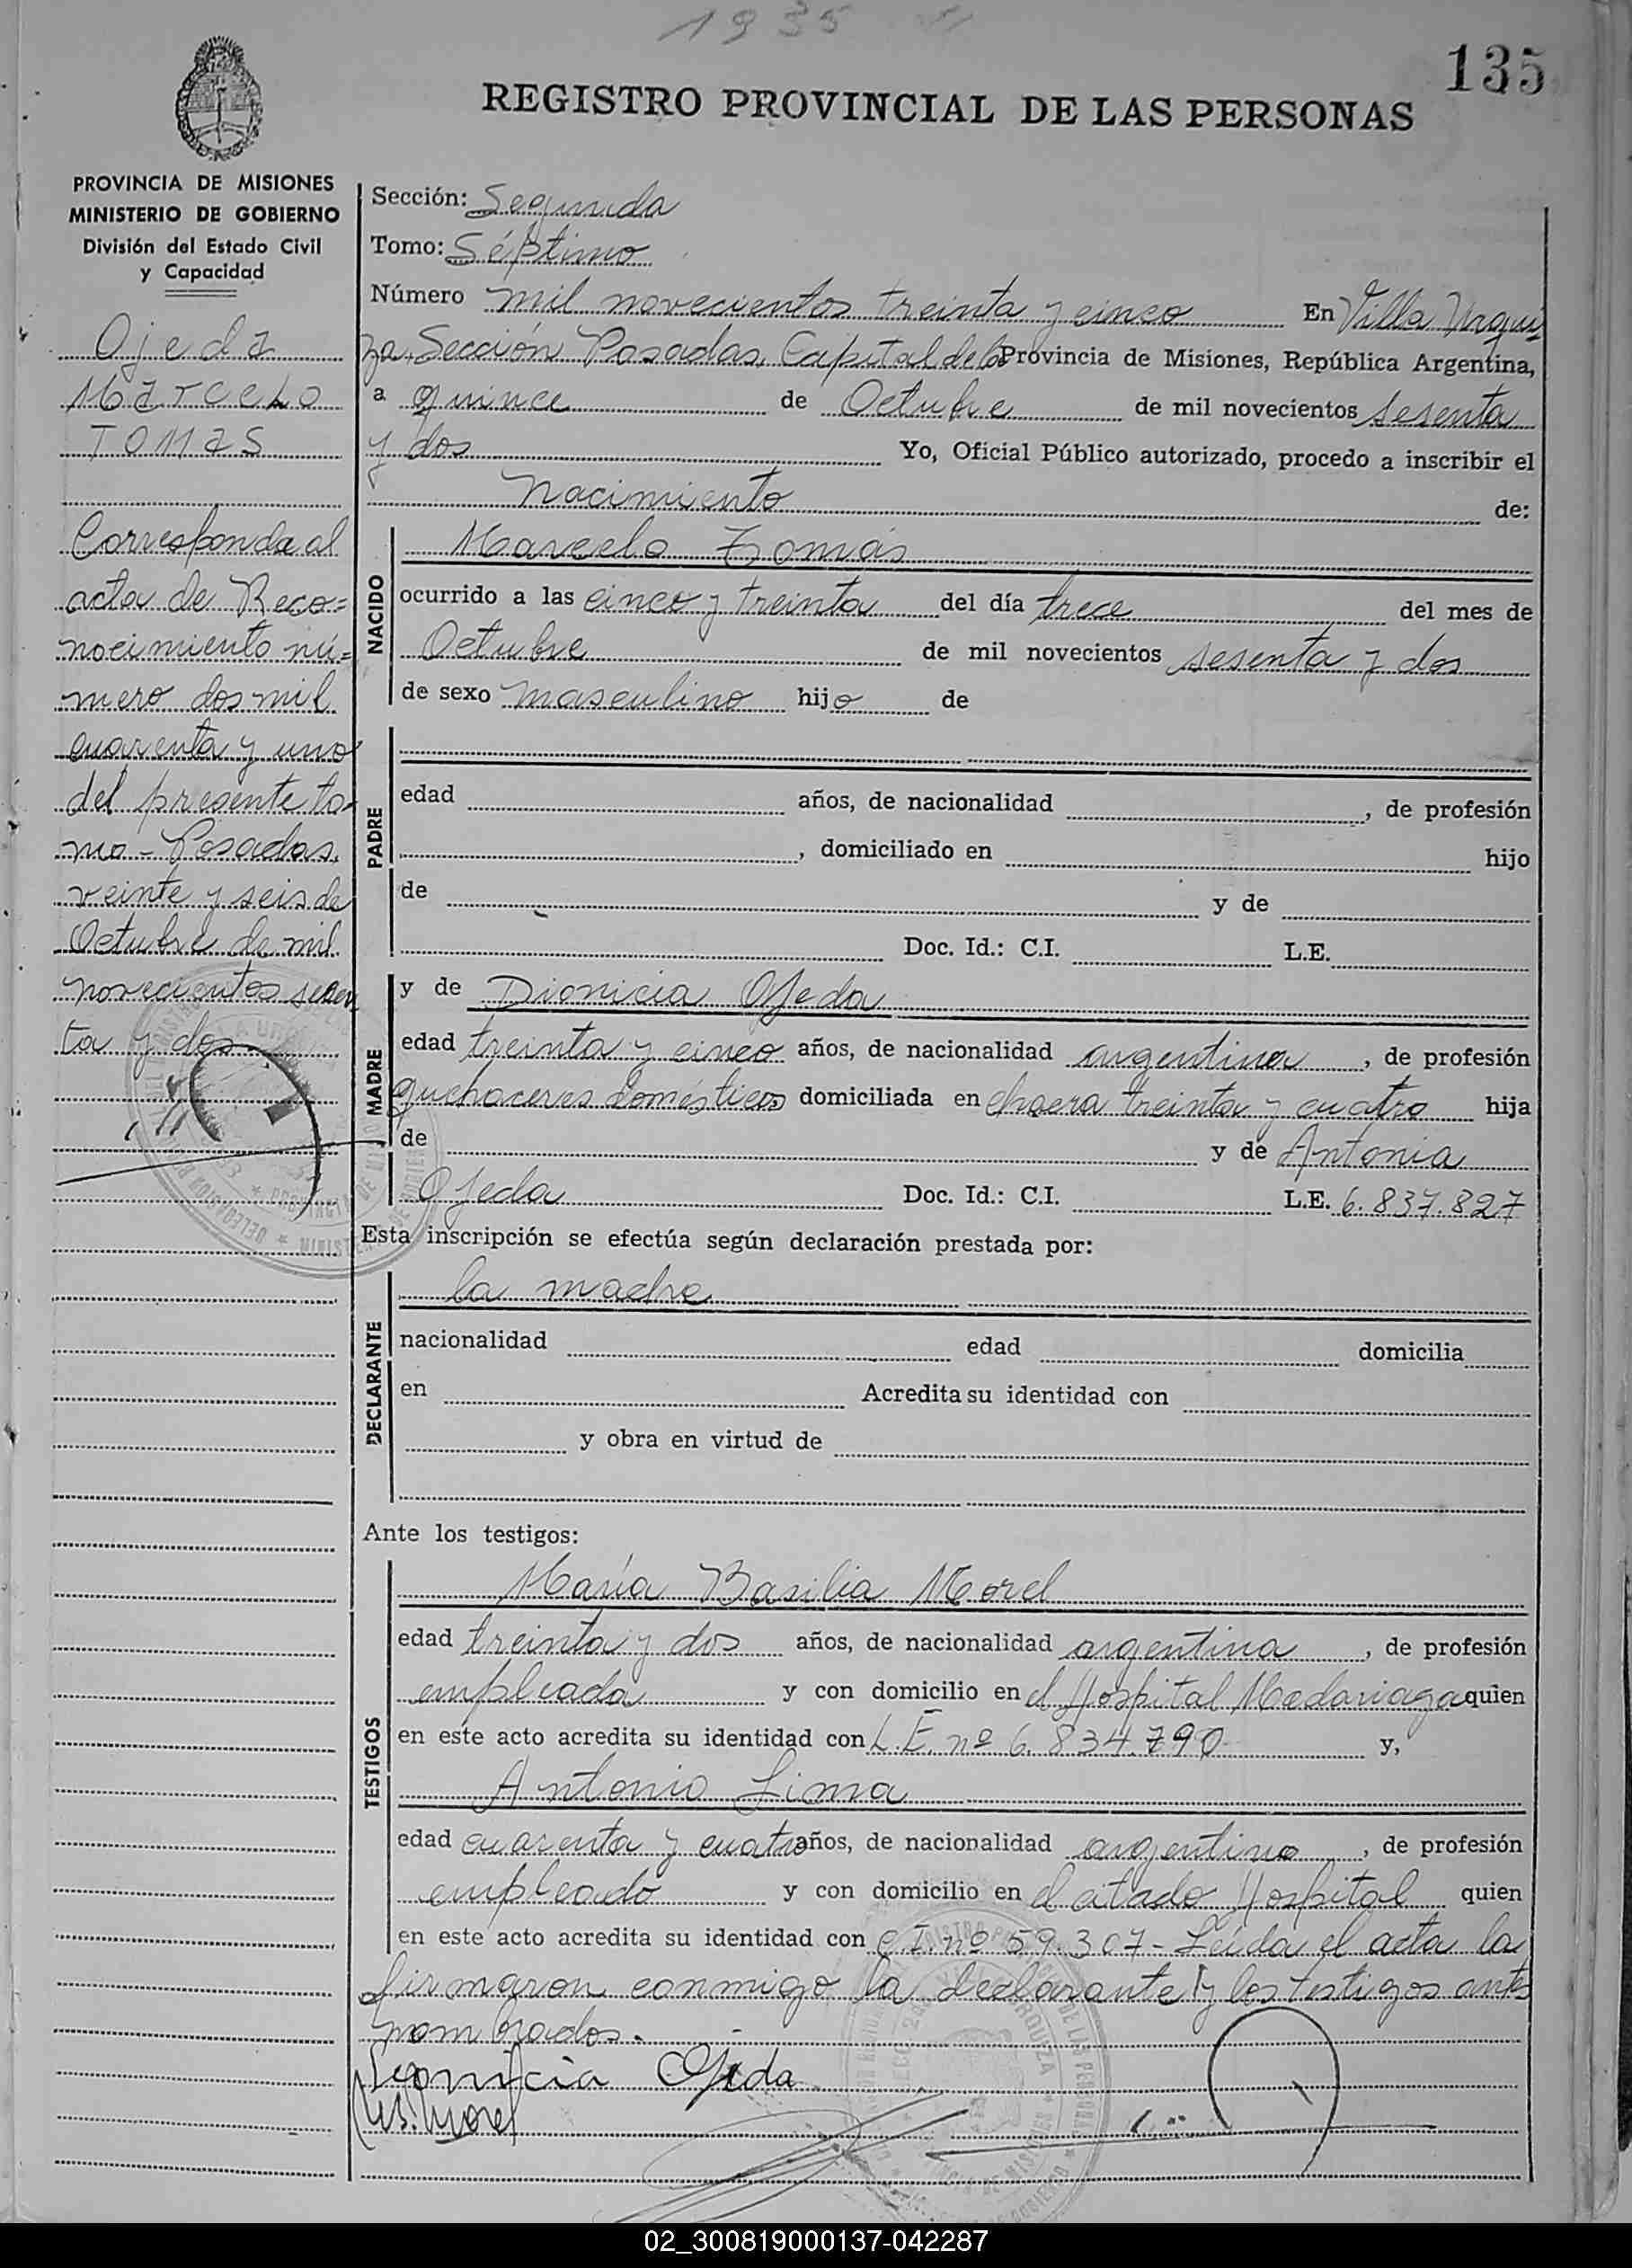 1935
135
REGISTRO PROVINCIAL DE LAS PERSONAS
PROVINCIA DE MISIONES
MINISTERIO DE GOBIERNO
División del Estado Civil
y Capacidad
Ojeda
Marcelo
Tomas
Corresponda al
acta de Reco=
nocimiento nú=
mero dos mil
cuarenta y uno
del presente to-
mo - Posadas,
veinte y seis de
Octubre de mil
novecientos sesen
ta y dos
Sección: Segunda
Tomo: Séptimo
Número mil novecientos treinta y cinco En Villa Urqui
za, Sección Posadas, Capital de la Provincia de Misiones, República Argentina,
a quince de Octubre de mil novecientos sesenta
y dos Yo, Oficial Público autorizado, procedo a inscribir el
Nacimiento de:
NACIDO
Marcelo Tomás
ocurrido a las cinco y treinta del día trece del mes de
Octubre de mil novecientos sesenta y dos
de sexo masculino hijo de
PADRE
edad años, de nacionalidad , de profesión
, domiciliado en hijo
de y de
Doc. Id.: C.I. L.E.
MADRE
y de Dionicia Ojeda
edad treinta y cinco años, de nacionalidad argentina , de profesión
quehaceres domésticos domiciliada en chacra treinta y cuatro hija
de y de Antonia
Ojeda Doc. Id.: C.I. L.E. 6.837.827
Esta inscripción se efectúa según declaración prestada por:
DECLARANTE
la madre
nacionalidad edad domicilia
en Acredita su identidad con
y obra en virtud de
Ante los testigos:
TESTIGOS
María Basilia Morel
edad treinta y dos años, de nacionalidad argentina , de profesión
empleada y con domicilio en el Hospital Madariaga quien
en este acto acredita su identidad con L.E. nº 6.834.790 y,
Antonio Lima
edad cuarenta y cuatro años, de nacionalidad argentino , de profesión
empleado y con domicilio en el citado Hospital quien
en este acto acredita su identidad con C.I. nº 59.307 - Leída el acta la
firmaron conmigo la declarante y los testigos antes
nombrados.
Ojeda
Morel
02_300819000137-042287